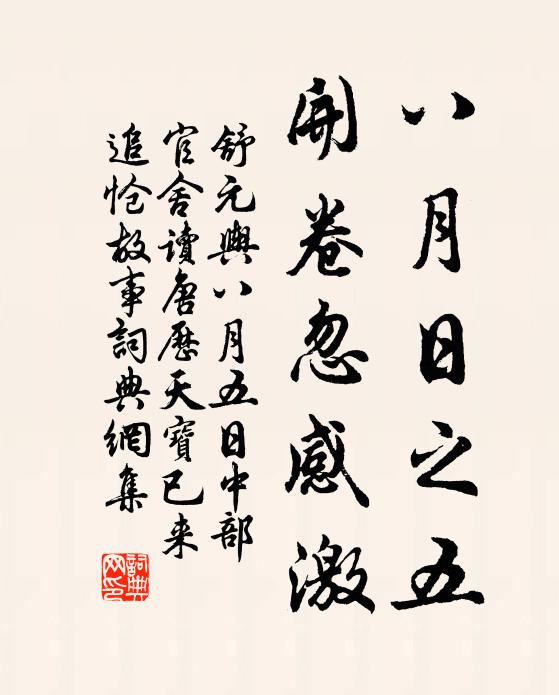 八月日之五
開卷忽感激
舒元輿八月五日中部
官舍讀唐歷天寶已来
追愴故事詞典網集
詞典
网印